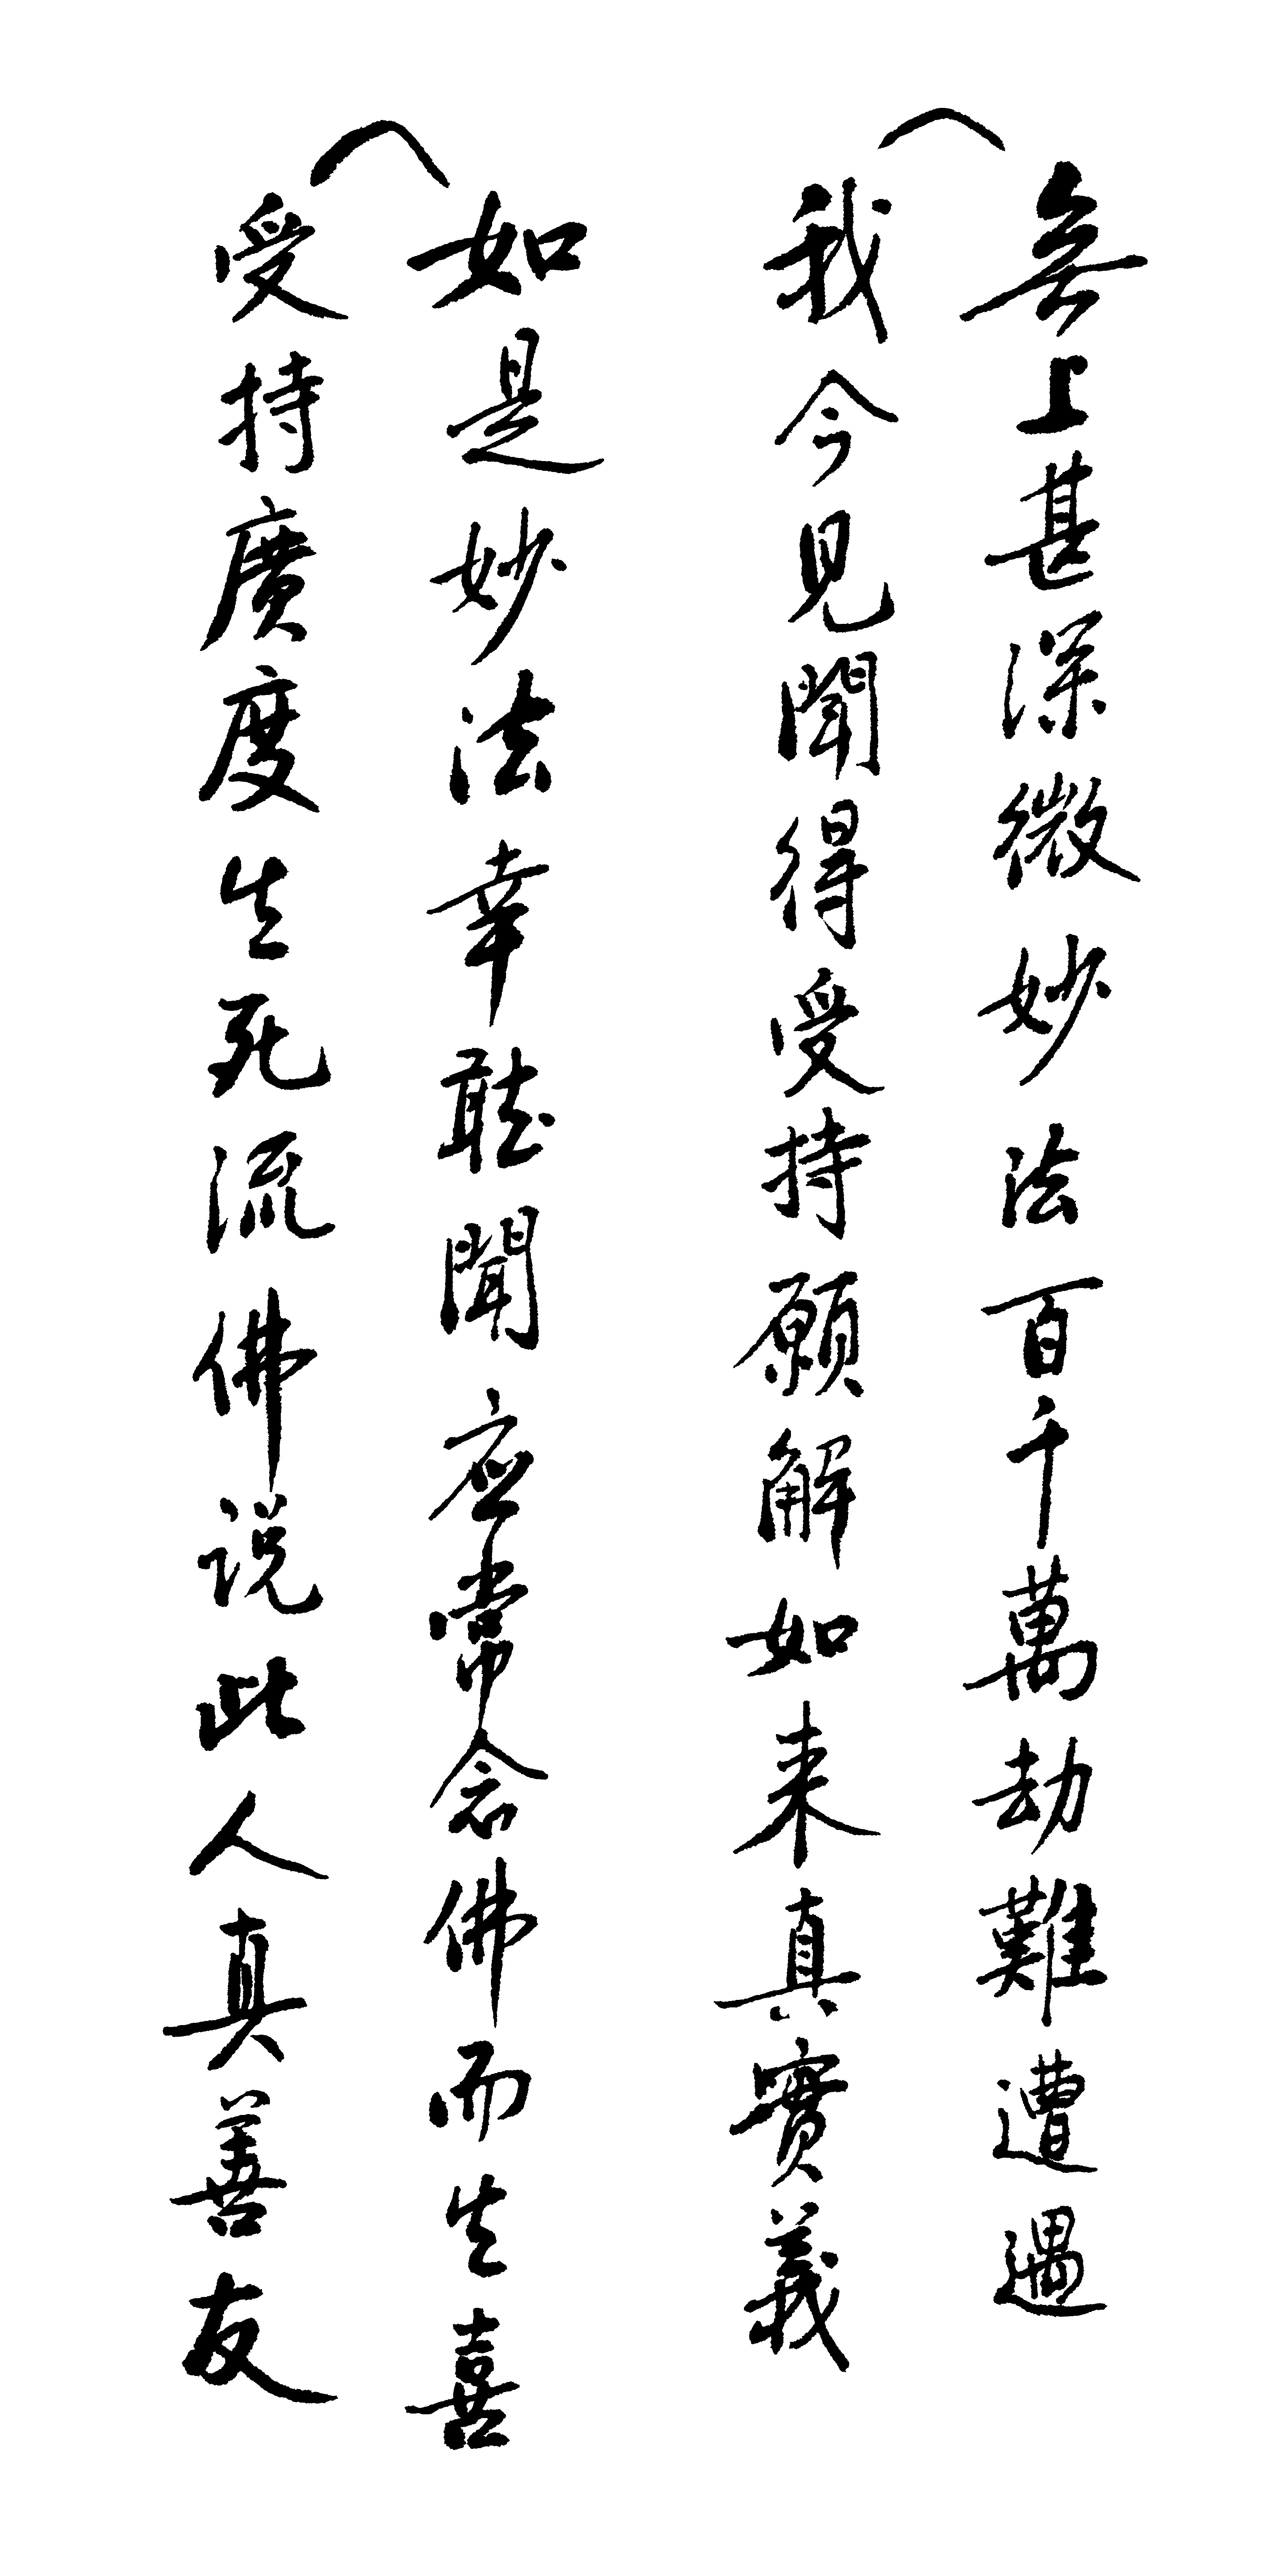 無上甚深微妙法百千萬劫難遭遇
我今見聞得受持願解如来真實義
如是妙法幸聽聞应常念佛而生喜
受持廣度生死流佛説此人真善友